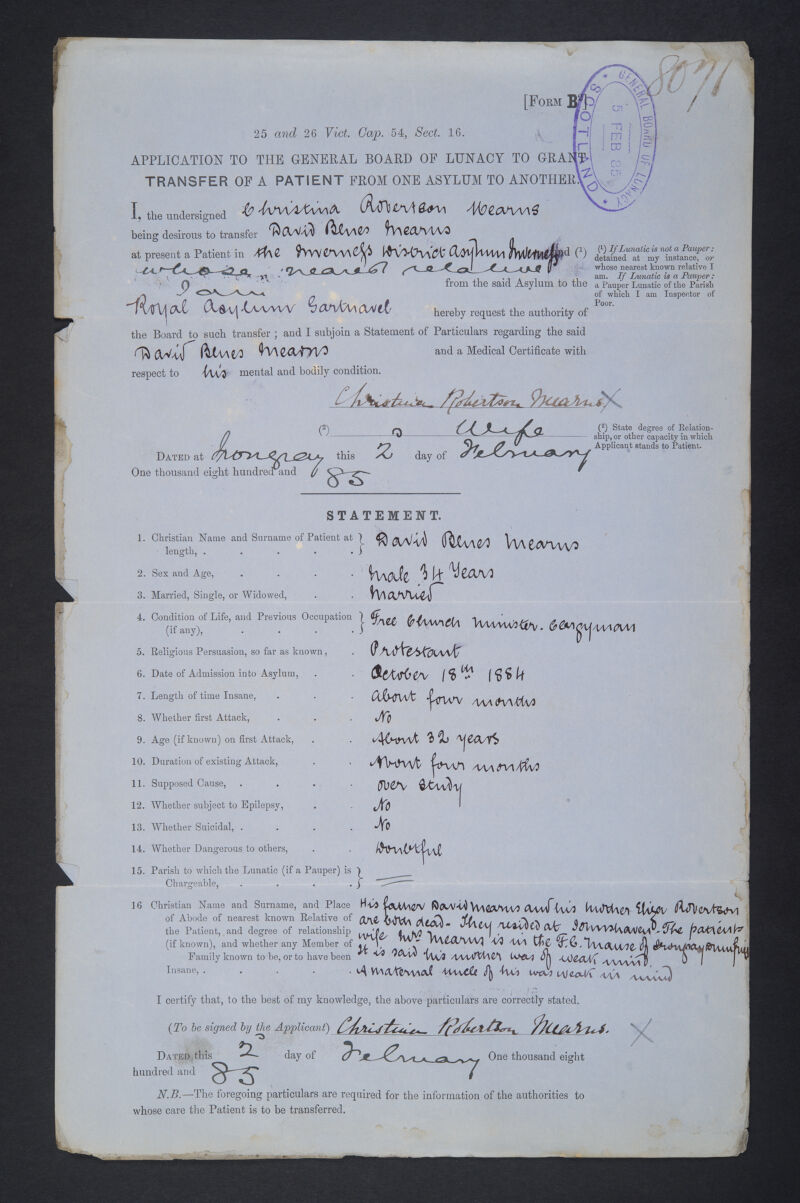 8071
[FORM B²]
GENERAL BOARD OF LUNACY
5 FEB 85
SCOTLAND
25 and 26 Vict. Cap. 54, Sect. 16.
APPLICATION TO THE GENERAL BOARD OF LUNACY TO GRANT
TRANSFER OF A PATIENT FROM ONE ASYLUM TO ANOTHER.
I, the undersigned Christina Robertson Mearns
being desirous to transfer David Mearns
at present a Patient in the Inverness District Asylum Inverness and (¹)
whose nearest relative
I am from the said Asylum to the
Royal Asylum Gartnavel hereby request the authority of
the Board to such transfer ; and I subjoin a Statement of Particulars regarding the said
David Mearns and a Medical Certificate with
respect to his mental and bodily condition.
(¹) If Lunatic is not a Pauper :
detained at my instance, or
whose nearest known relative I
am. If Lunatic is a Pauper :
a Pauper Lunatic of the Parish
of which I am Inspector of
Poor.
Christina Robertson Mearns X
(²) Wife
(²) State degree of Relation-
ship, or other capacity in which
Applicant stands to Patient.
DATED at Irongray this 2 day of February
One thousand eight hundred and 85
STATEMENT.
1. Christian Name and Surname of Patient at
length, . . . . . David Mearns
2. Sex and Age, . . . . Male 34 Years
3. Married, Single, or Widowed, . . Married
4. Condition of Life, and Previous Occupation
(if any), . . . . Free Church Minister. Clergyman
5. Religious Persuasion, so far as known, . Protestant
6. Date of Admission into Asylum, . . October 18th 1884
7. Length of time Insane, . . . About four months
8. Whether first Attack, . . . No
9. Age (if known) on first Attack, . . About 32 years
10. Duration of existing Attack, . . About four months
11. Supposed Cause, . . . . over study
12. Whether subject to Epilepsy, . . No
13. Whether Suicidal, . . . . No
14. Whether Dangerous to others, . . Doubtful
15. Parish to which the Lunatic (if a Pauper) is
Chargeable, . . . .
16 Christian Name and Surname, and Place
of Abode of nearest known Relative of
the Patient, and degree of relationship
(if known), and whether any Member of
Family known to be, or to have been
Insane, . . . . .
His father David Mearns and his mother Eliza Robertson
are both dead. They resided at Johnshaven. The patient's
wife Mrs Mearns is in the F.C. Manse of Irongray Dumfries
It is said his mother was of weak mind.
A maternal uncle of his was weak in mind
I certify that, to the best of my knowledge, the above particulars are correctly stated.
(To be signed by the Applicant) Christina Robertson Mearns. X
DATED this 2 day of February One thousand eight
hundred and 85
N.B.—The foregoing particulars are required for the information of the authorities to
whose care the Patient is to be transferred.